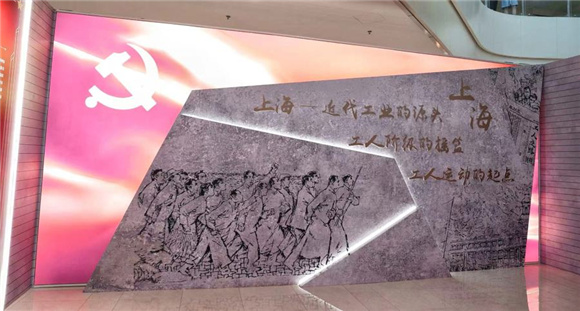 上海
上海—近代工业的源头
工人阶级的摇篮
工人运动的起点